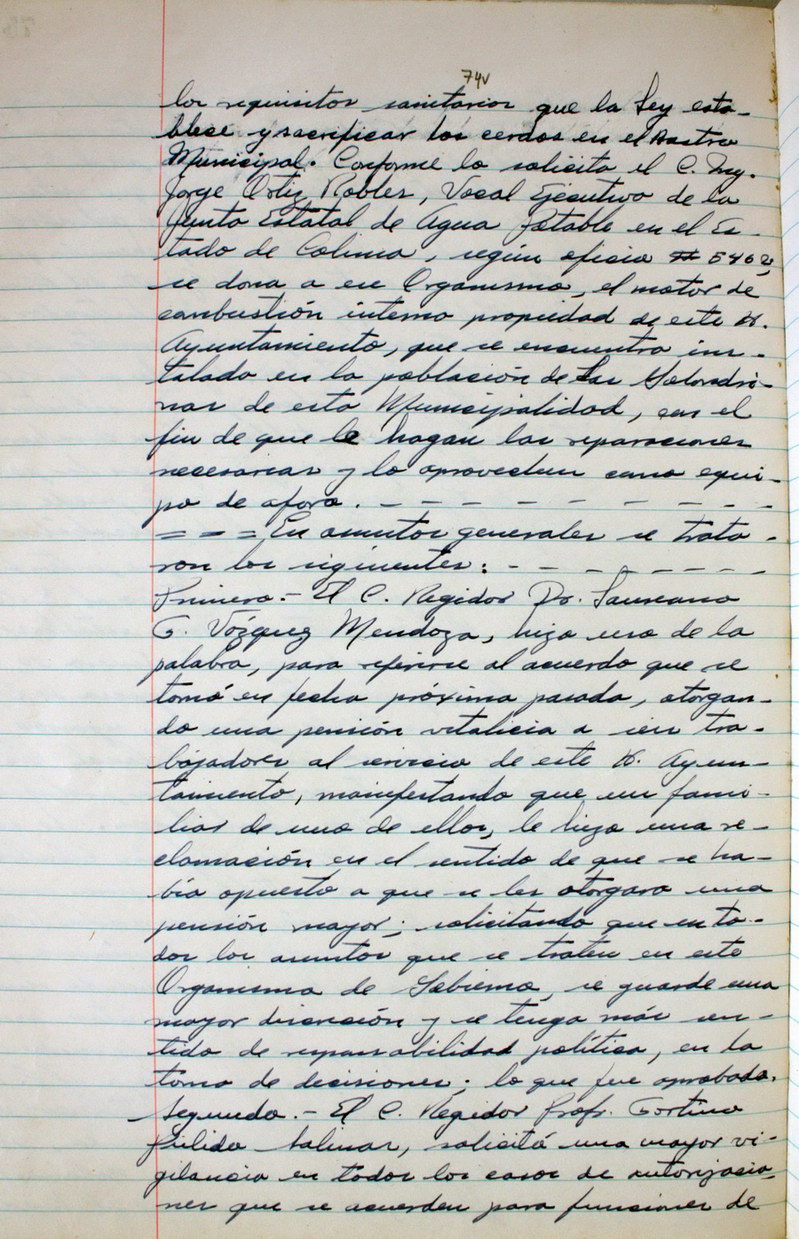 74v
los requisitos sanitarios que la Ley esta-
blece y sacrificar los cerdos en el Rastro
Municipal. Conforme lo solicita el C. Ing.
Jorge Ortiz Robles, Vocal Ejecutivo de la
Junta Estatal de Agua Potable en el Es-
tado de Colima, según oficio # 5402,
se dona a ese Organismo, el motor de
combustión interna propiedad de este H.
Ayuntamiento, que se encuentra ins-
talado en la población de Las Golondri-
nas de esta Municipalidad, con el
fin de que le hagan las reparaciones
necesarias y lo aprovechen como equi-
po de aforo. - - - - - - - - -
= = = En asuntos generales se trata-
ron los siguientes: - - - - - - - -
Primero.- El C. Regidor Dr. Laureano
G. Vázquez Mendoza, hizo uso de la
palabra, para referirse al acuerdo que se
tomó en fecha próxima pasada, otorgan-
do una pensión vitalicia a seis tra-
bajadores al servicio de este H. Ayun-
tamiento, manifestando que un fami-
liar de uno de ellos, le hizo una re-
clamación en el sentido de que se ha-
bía opuesto a que se les otorgara una
pensión mayor; solicitando que en to-
dos los asuntos que se traten en este
Organismo de Gobierno, se guarde una
mayor discreción y se tenga más sen-
tido de responsabilidad política, en la
toma de decisiones; lo que fue aprobado.
Segundo.- El C. Regidor Profr. Gortino
Pulido Salinas, solicitó una mayor vi-
gilancia en todos los casos de autorizacio-
nes que se acuerden para funciones de